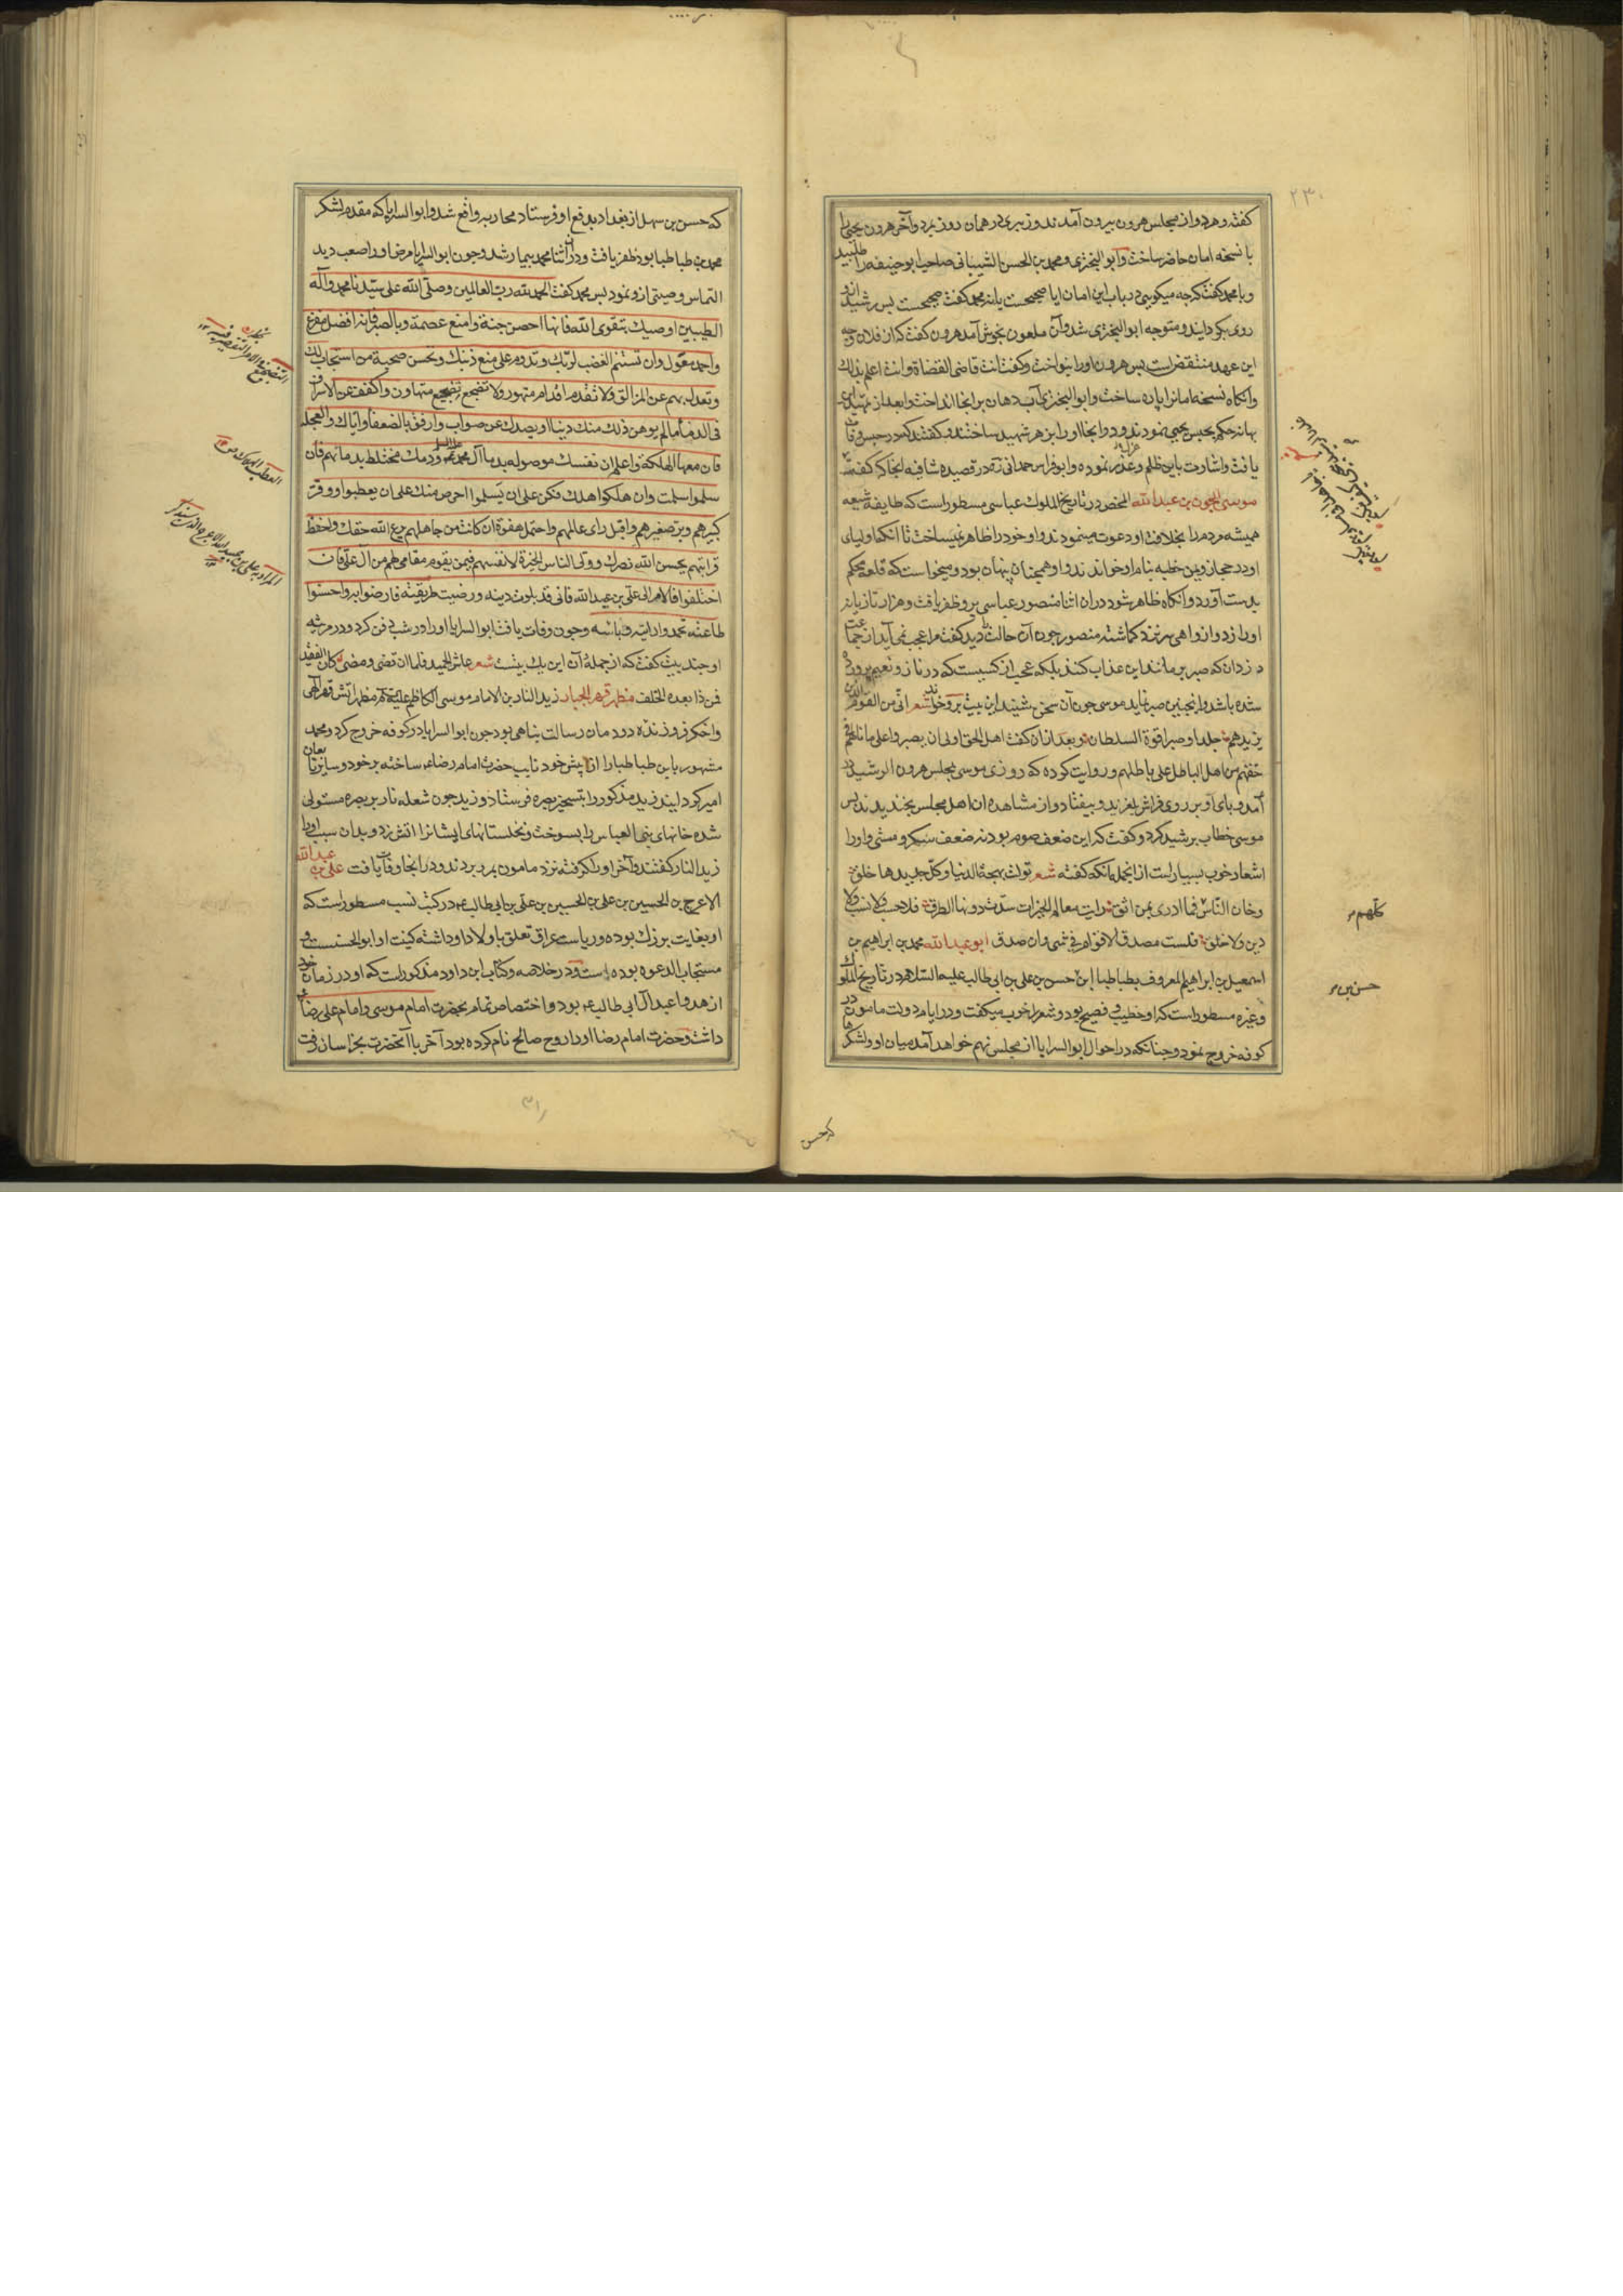 ۲۳۰
کفته و هر دو از مجلس هرون بیرون آمدند و زبیری در همان روز بمرد و آخر هرون یحیی را
با نسخه امان حاضر ساخت و ابو البختری و محمد بن الحسن الشیبانی صاحب ابو حنیفه را طلبید
و با محمد کفت که چه میکویی در باب این امان ایا صحیحست یا نه محمد کفت صحیحست پس رشید ازو
روی بکردانید و متوجه ابو البختری شد و آن ملعون بخوش آمد هرون کفت که از فلان وجه
این عهد منتقض است پس هرون او را بنواخت و کفت انت قاضی القضاة وانت اعلم بذلک
وانکاه نسخه امانرا پاره ساخت و ابو البختری آب دهان بر انجا انداخت و بعد از تمهید این
بهانه حکم بحبس یحیی نمودند و در انجا او را بزهر شهید ساختند و کفتند که در حبس وفات
یافت و اشارت باین ظلم و غدر نموده و ابو فراس حمدانی در قصیده شافیه انجا که کفته
موسی الجون بن عبد الله المحض در تاریخ الملوک عباسی مسطور است که طایفه شیعه
همیشه مردم را بخلافت او دعوت مینمودند و او خود را ظاهر نمیساخت تا آنکه اولیای
او در حجاز و یمن خطبه بنام او خواندند و او همچنان پنهان بود و میخواست که قلعه محکم
بدست آورد و انکاه ظاهر شود در ان اثنا منصور عباسی برو ظفر یافت و هزار تازیانه
او را زد و او اهی نزد کماشته منصور چون آن حالت دید کفت مرا عجب نمی آید از جماعت
دزدان که صبر بر مانند این عذاب کنند بلکه عجب از کسیست که در ناز و نعیم پرورده
شده باشد و اینچنین صبر نماید موسی چون آن سخن شنید این بیت برو خواند شعر انی من القوم الذین
یزیدهم جلدا و صبرا قوة السلطان و بعد ازان کفت اهل الحق اولی ان یصبروا علی ما نالهم فی
حقهم من اهل الباطل علی باطلهم و روایت کرده که روزی موسی بمجلس هرون الرشید در
آمد و پای او بر روی فراش بلغزید و بیفتاد و از مشاهده ان اهل مجلس بخندیدند پس
موسی خطاب برشید کرد و کفت که این ضعف صوم بود نه ضعف سکر و مستی و او را
اشعار خوب بسیار است از انجمله انکه کفته شعر تولت بهجة الدنیا و کل جدیدها خلق
وخان الناس فما ادری بمن اثق رایت معالم الخیرات سدت دونها الطرق فلا حسب ولا نسب ولا
دین ولا خلق فلست مصدق الاقوام فی شی وان صدق ابو عبد الله محمد بن ابراهیم بن
اسمعیل بن ابراهیم المعروف بطباطبا ابن حسن بن علی بن ابی طالب علیه السلام در تاریخ الملوک
و غیره مسطور است که او خطیب و فصیح بود و شعر را خوب میکفت و در ایام دولت مامون در
کوفه خروج نمود و چنانکه در احوال ابو السرایا از مجلس نهم خواهد آمد میان او و لشکرها
کلهم
حسن بن
که حسن
که حسن بن سهل از بغداد بدفع او فرستاد محاربه واقع شد و ابو السرایا که مقدم لشکر
محمد بن طباطبا بود ظفر یافت و در ان اثنا محمد بیمار شد و چون ابو السرایا مرض او را صعب دید
التماس وصیتی ازو نمود پس محمد کفت الحمد لله رب العالمین وصلی الله علی سیدنا محمد وآله
الطیبین اوصیک بتقوی الله فانها احصن جنة وامنع عصمة وبالصبر فانه افضل مفزع
واحمد معول وان تستتم الغضب لربک وتدوم علی منع دینک وتحسن صحبة من استجاب لک
وتعدل بهم عن المزالق ولا تقدم اقدام متهور ولا تضجع تضجیع متهاون واکفف عن الاسراف
فی الدماء ما لم یوهن ذلک منک دینا او یصدک عن صواب وارفق بالضعفا وایاک والعجلة
فان معها الهلکة واعلم ان نفسک موصوله بدماء آل محمد ودمک مختلط بدمائهم فان
سلموا سلمت وان هلکوا هلکت فکن علی ان یسلموا احرص منک علی ان یعطبوا ووقر
کبیرهم وبر صغیرهم واقبل رای عالمهم واحتمل هفوة ان کانت من جاهلهم یرع الله حقک واحفظ
قرابتهم یحسن الله نصرک وولی الناس الخیرة لانفسهم فیمن یقوم مقامی لهم من آل علی فان
اختلفوا فالامر الی علی بن عبید الله فانی قد بلوت دینه ورضیت طریقته فارضوا به واحسنوا
طاعته تحمدوا رایه وباسه و چون وفات یافت ابو السرایا او را در شب دفن کرد و در مرثیه
او چند بیت کفت که از جملهٔ آن این یک بیت است شعر عاش الحمید فلما ان قضی ومضی کان الفقید
فمن ذا بعده الخلف مظهر قهر الجبار زید النار بن الامام موسی الکاظم علیه السلام مظهر آتش قهر الهی
واخکر فروزنده دودمان رسالت پناهی بود چون ابو السرایا در کوفه خروج کرد و محمد
مشهور بابن طباطبا را از پیش خود نایب حضرت امام رضا ساخته بر خود و سایر تابعان
امیر کردانید زید مذکور را بتسخیر بصره فرستاد و زید چون شعله نار بر بصره مستولی
شده خانهای بنی العباس را بسوخت و نخلستانهای ایشانرا اتش زد و بدان سبب او را
زید النار کفتند و آخر او را کرفته نزد مامون بمرو بردند و در انجا وفات یافت علی بن عبید الله
الاعرج بن الحسین بن علی بن الحسین بن علی بن ابی طالب در کتب نسب مسطور است که
او بغایت بزرک بوده و ریاست عراق تعلق باولاد او داشته کنیت او ابو الحسنست و
مستجاب الدعوه بوده است و در خلاصه و کتاب ابن داود مذکور است که او در زمان خود
ازهد و اعبد آل ابی طالب بود و اختصاص تمام بحضرت امام موسی و امام علی رضا
داشت و حضرت امام رضا او را روح صالح نام کرده بود آخر با آنحضرت بخراسان رفت